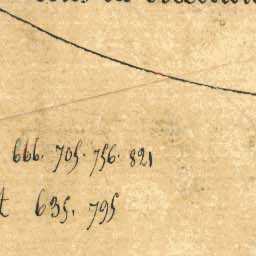 666. 705. 756. 821
t 635. 795